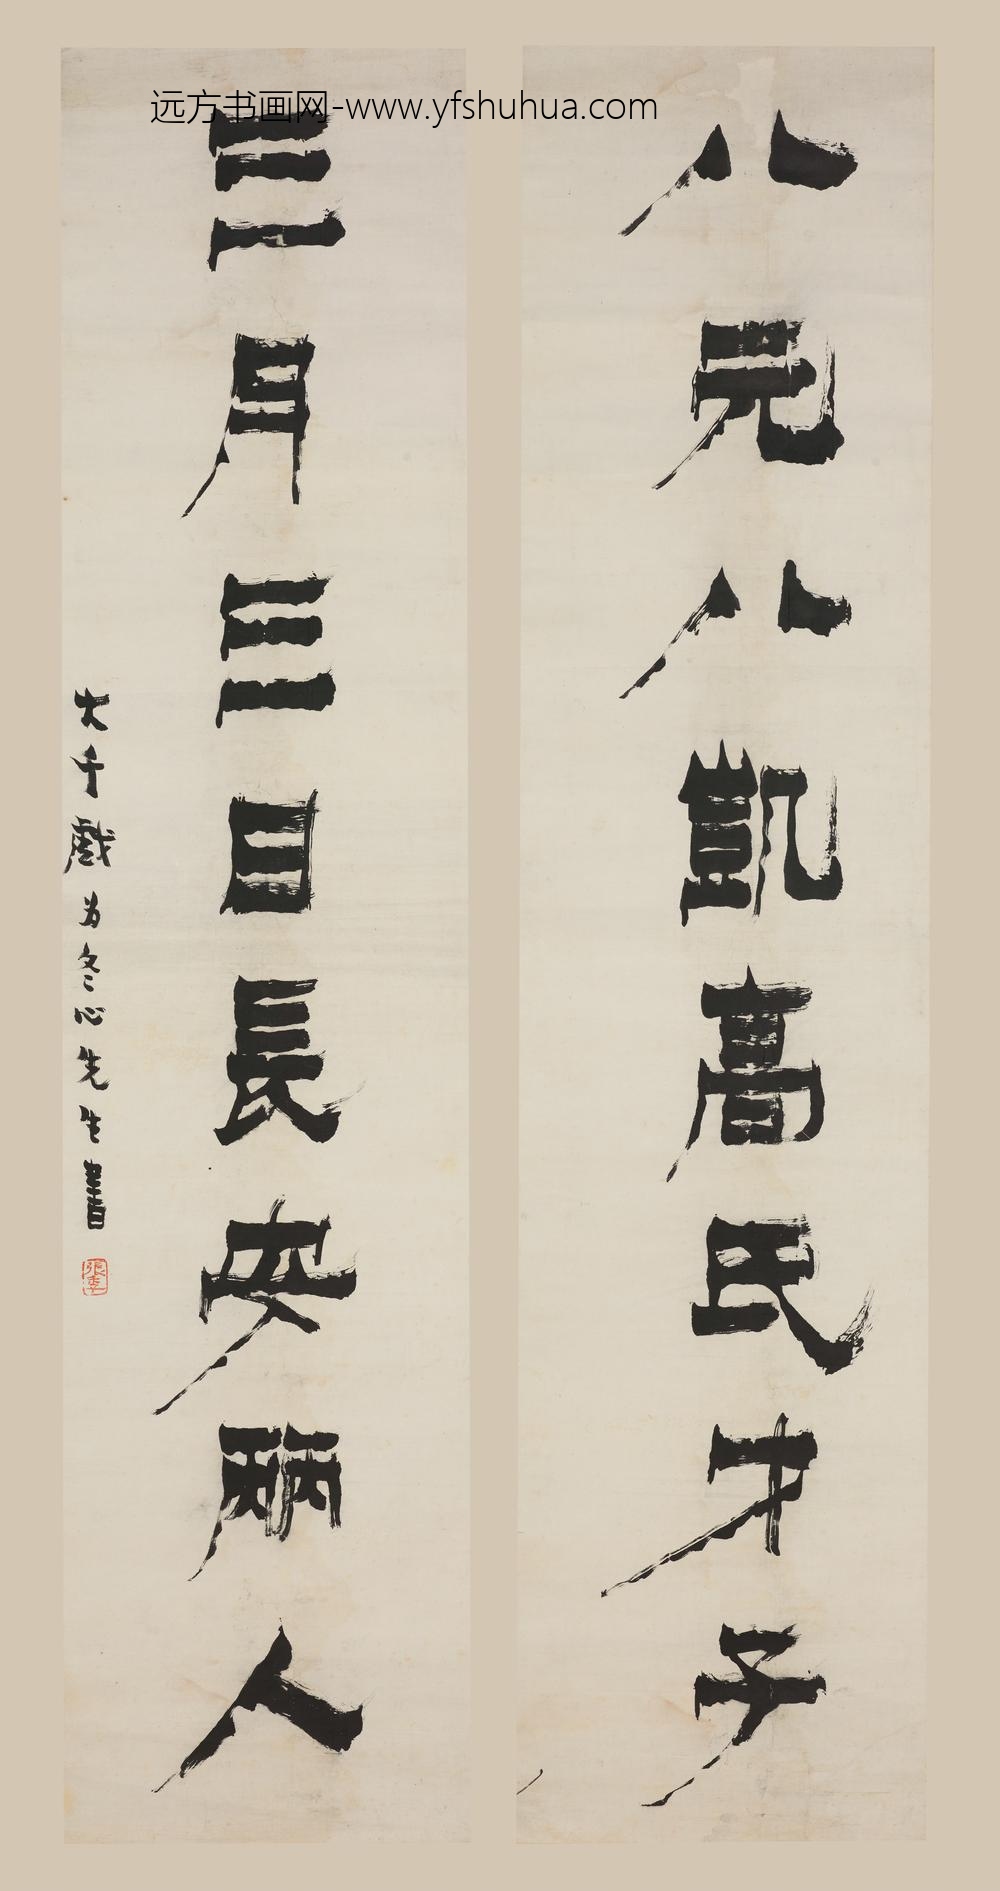 远方书画网-www.yfshuhua.com
八元八凯高氏才子
三月三日長安兩人
大千戲为冬心先生書
張季